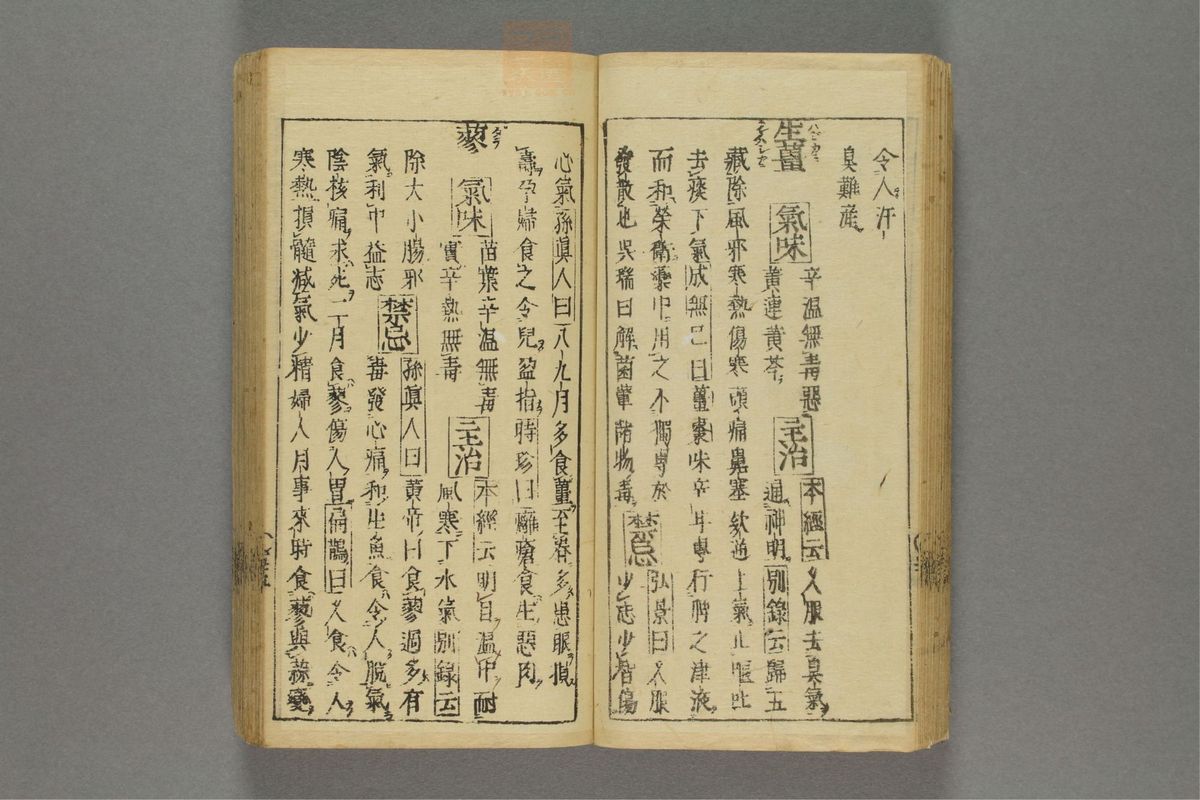 令人汗
臭難産
生薑
氣味
辛温無毒惡
黄連黄芩
主治
本經云久服去臭氣
通神明別錄云歸五
藏除風邪寒熱傷寒頭痛鼻塞欬逆上氣止嘔吐
去痰下氣成無已曰薑棗味辛甘專行脾之津液
而和榮衛藥中用之不獨專於
發散也吳瑞曰解菌蕈諸物毒
禁忌
弘景曰久服
少志少智傷
心氣孫眞人曰八九月多食薑至春多患眼損
壽孕婦食之令兒盈指時珍曰癰瘡食生惡肉
蓼
氣味
苗葉辛温無毒
實辛熱無毒
主治
本經云明目温中耐
風寒下水氣別錄云
除大小腸邪
氣利中益志
禁忌
孫眞人曰黄帝曰食蓼過多有
毒發心痛和生魚食令人脱氣
陰核痛求死二月食蓼傷人胃扁鵲曰久食令人
寒熱損髓減氣少精婦人月事來時食蓼與蒜變